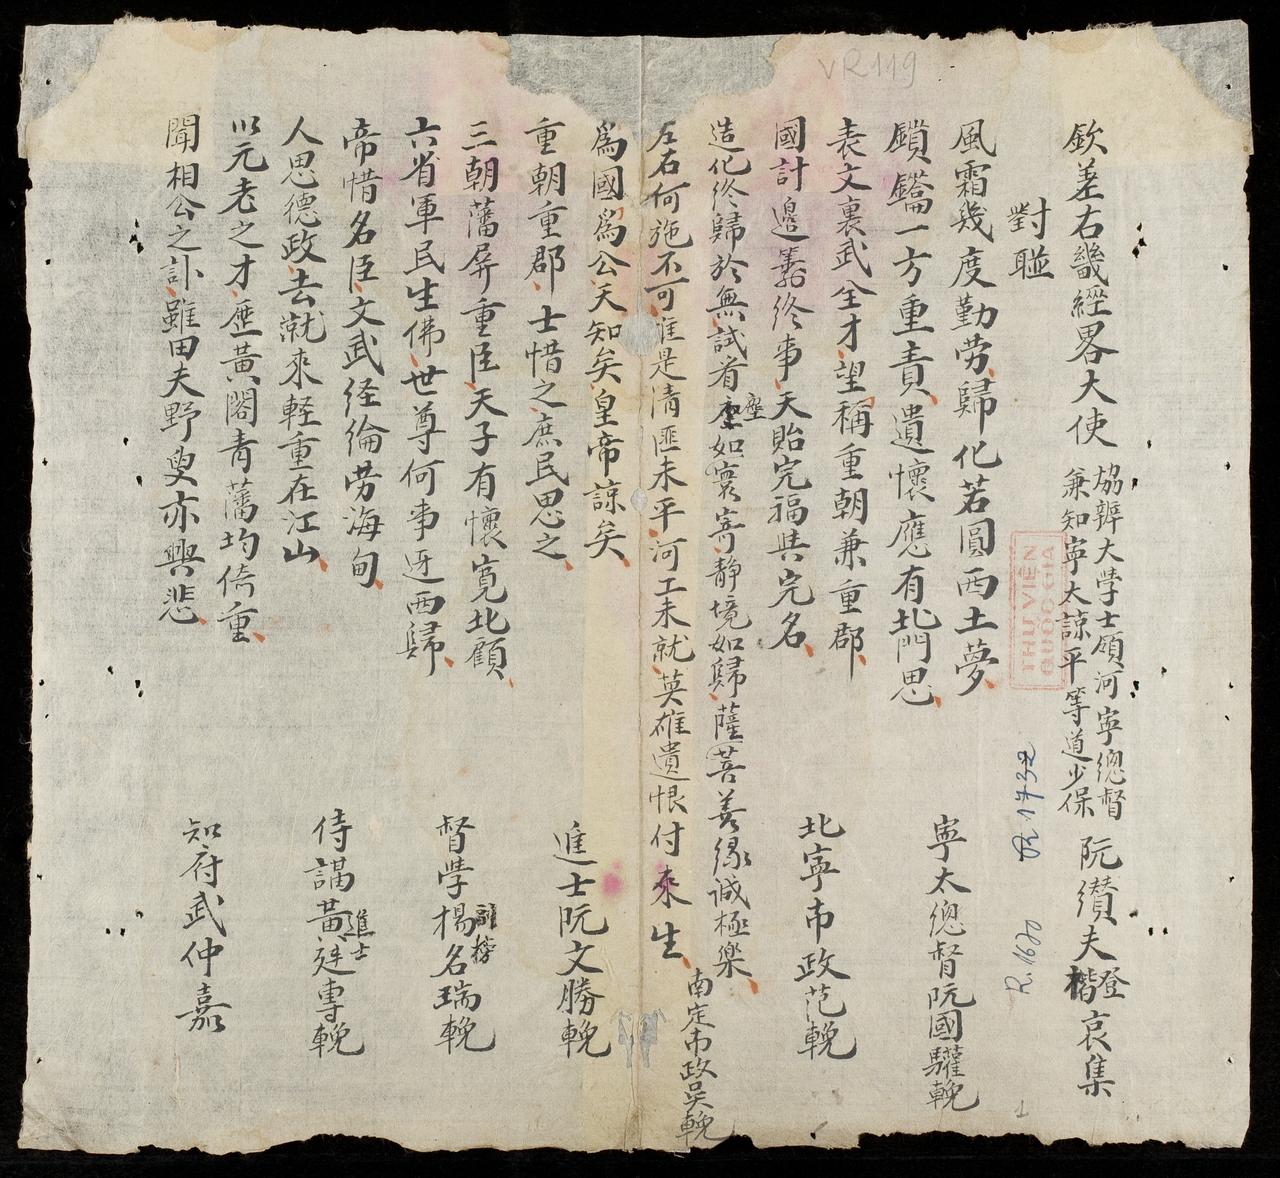 VR119
欽差右畿經畧大使 協辨大學士領河寧總督 兼知寧太諒平等道少保 阮纉夫 登楷 哀集
對聯
風霜幾度勤勞歸化若圓西土夢
鎖鑰一方重責遺懷應有北門思 寧太總督阮國驩輓
表文裏武全才望稱重朝兼重郡
國計邊籌終事天貽完福與完名 北寧布政范輓
造化終歸於無試看塵如寰寄靜境如歸薩菩善緣誠極樂
左右何施不可誰是清匪未平河工未就英雄遺恨付來生 南定布政吳輓
爲國爲公天知矣皇帝諒矣
重朝重郡士惜之庶民思之 進士阮文勝輓
三朝藩屏重臣天子有懷寬北顧
六省軍民生佛世尊何事迓西歸 督學楊名瑞輓
帝惜名臣文武経綸勞海甸
人思德政去就來軽重在江山 侍講黃廷專輓 進士
以元老之才歷黃閣青藩均倚重
聞相公之訃雖田夫野叟亦興悲 知府武仲嘉
THƯ VIỆN
QUỐC GIA
R.1620
R 1732